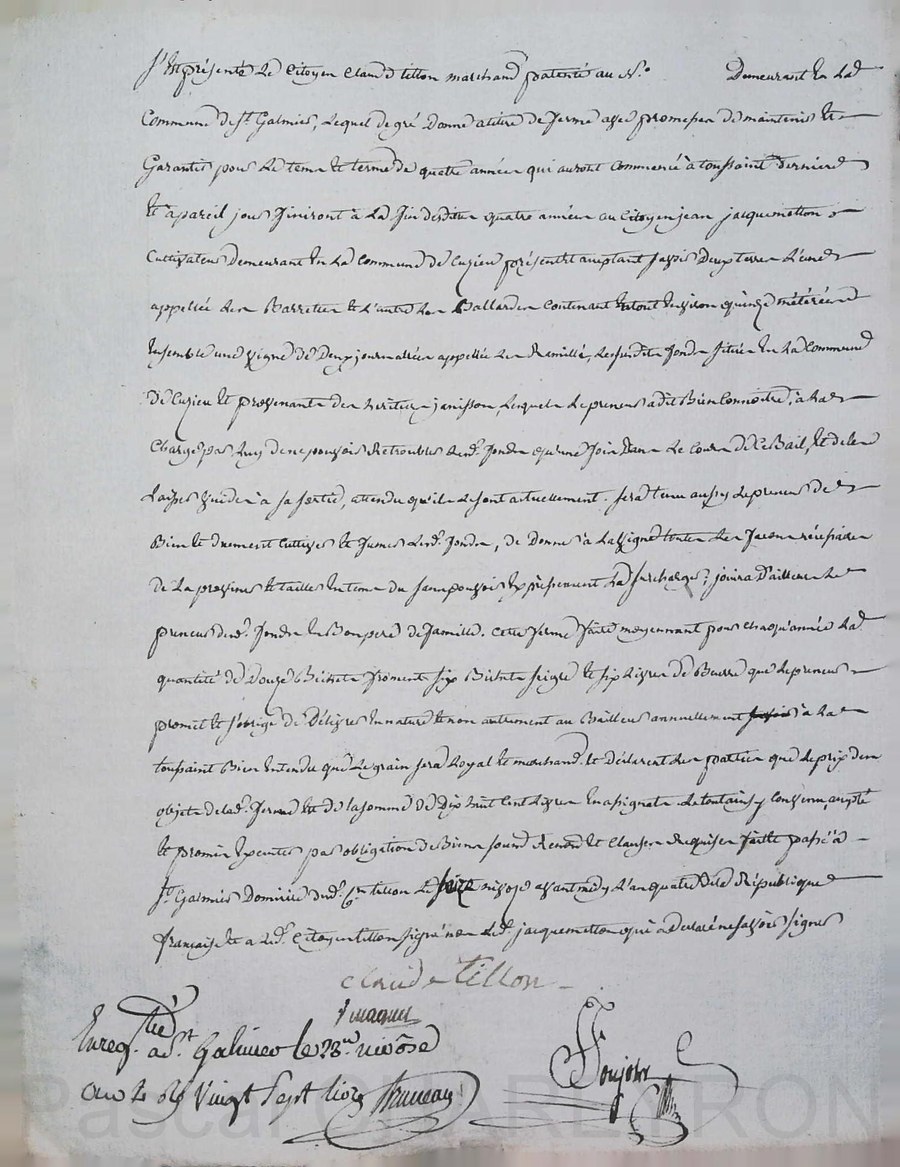 S'est présenté Le Citoyen Claud tillon marchand patenté au N.° Demeurant En Lad
Commune de St. Galmier, Lequel de gré Donne a titre de ferme avec promesse de maintenir Et
Garantir pour Le tems Et terme de quatre années qui auront Commencé à toussaint Derniere
Et à pareil jour finiront à La fin desdites quatre années au Citoyen jean jacquemetton
Cultivateur Demeurant En La Commune de Cuzieu présent Et acceptant savoir Deux terres L'une
appellée Les Barretier Et L'autre Les Ballardes Contenant En tout Environ quinze méterées
Ensemble une vigne de Deux journalées appellée Les Ramillé, Lesusdits fonds situés En La Commune
De Cuzieu Et provenants des heritiers janisson, Lesquels Le preneur a dit Bien Connoitre, à La
Charge par Luy de ne pouvoir Retroubler Lesd. fonds qu'une fois Dans Le Cours de Ce Bail, Et de les
Laisser vuides à sa sortie, attendu qu'ils Le sont actuellement. sera tenu aussy Le preneur de
Bien Et duement Cultiver Et fumer Lesd. fonds, de Donner à La vigne toutes Les façons nécessaires
De La provigner Et tailler En tems du sans pouvoir Expressement La surcharger; jouira D'ailleurs Le
preneur desd. fonds En Bon pere de famille. Cette ferme faite moyennant pour Chaqu'année La
quantité de Douze Bichets froment six Bichets seigle Et six Livres de Beurre que Le preneur
promet Et s'oblige de Délivrer En nature Et non autrement au Bailleur annuellement à La
toussaint Bien Entendu que Le grain sera Loyal Et marchand. Et Déclarent Les parties que Le prix des
objets de Lad. ferme Est de La somme de Dix huit Cent Livres En asignats Le tout ainsy Convenu, accepté
Et promis Executer par obligation de Biens soumis Renon Et Clauses Requises faitte passé à
St. Galmier Domicile dud. Cen tillon Le seize nivose avant midy L'an quatre de La République
française Et a Led. Citoyen tillon signé non Led. jacquemetton qui a Declaré ne savoir signer
claude tillon
Enreg. a St Galmier le 28me nivôse
an 4e Vingt Sept livres Bruneau